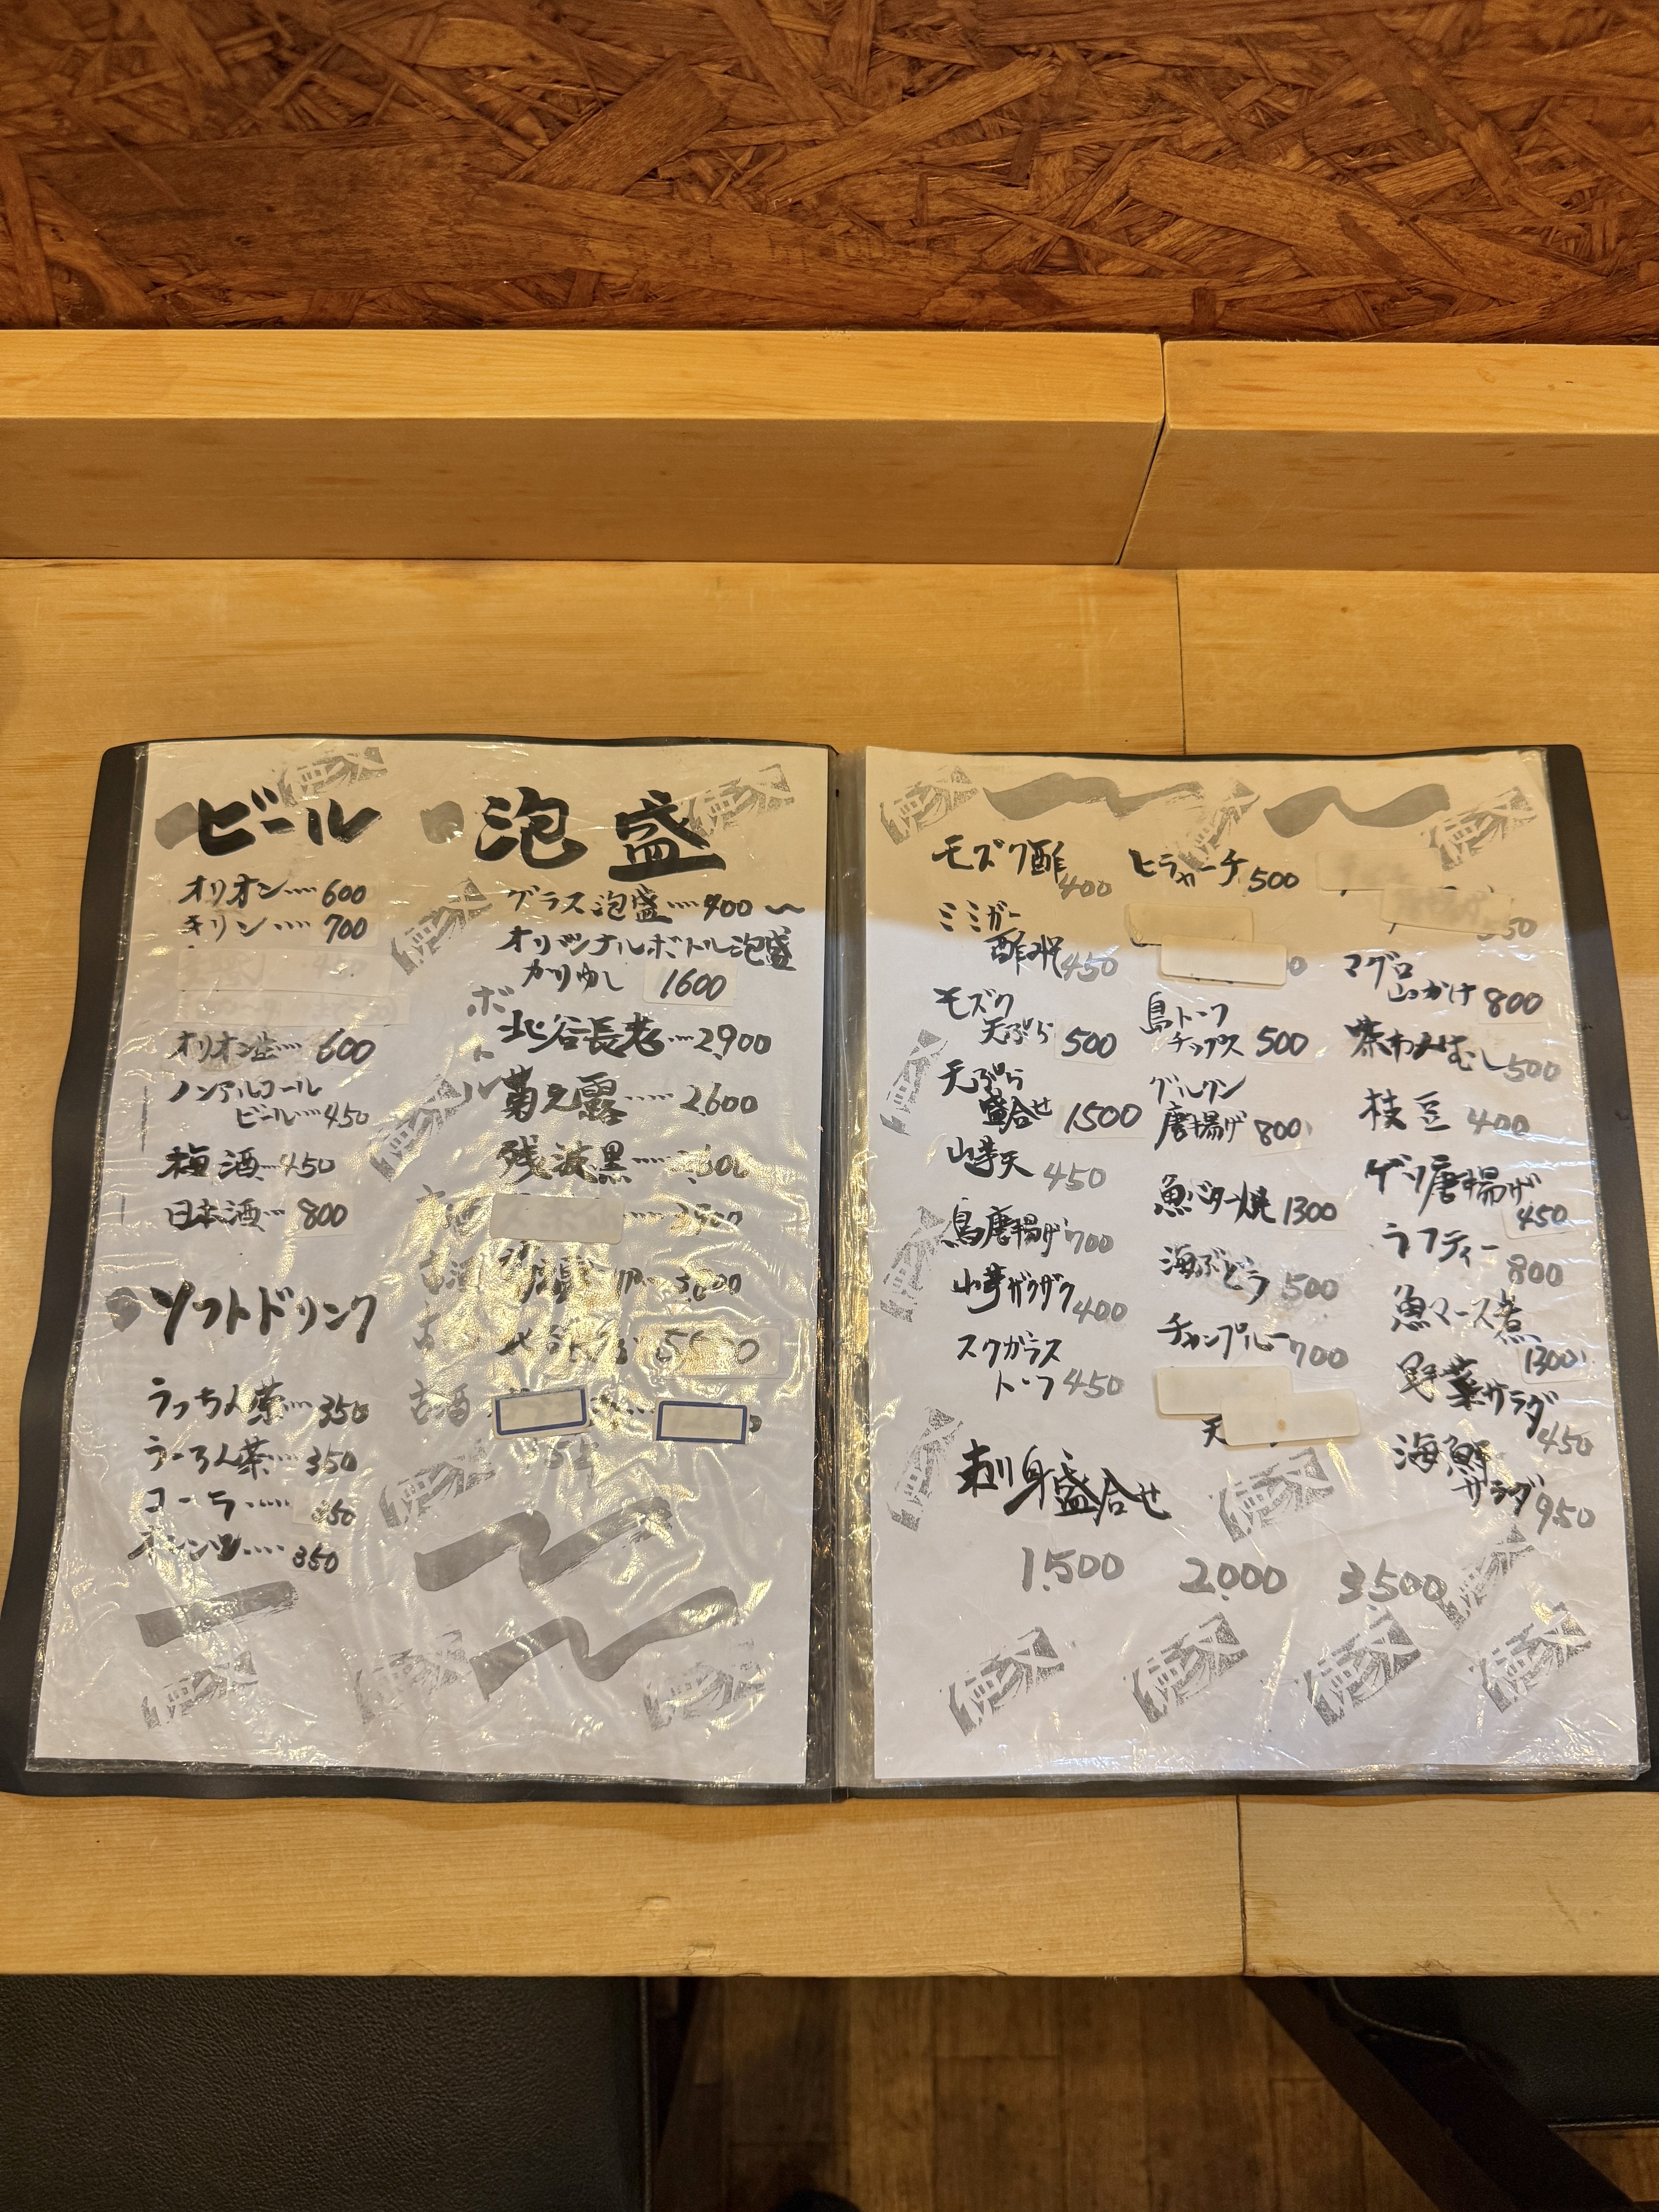 ビール
オリオン‥‥600
キリン‥‥700
オリオン生‥‥600
ノンアルコール
ビール‥‥450
梅酒‥‥450
日本酒‥‥800
ソフトドリンク
うっちん茶‥‥350
うーろん茶‥‥350
コーラ‥‥350
オレンジ‥‥350
泡盛
グラス泡盛‥‥400〜
オリジナルボトル泡盛
かりゆし 1600
ボトル
北谷長老‥‥2,900
菊之露‥‥2600
残波黒‥‥
古酒
モズク酢
400
ミミガー
酢みそ 450
モズク
天ぷら 500
天ぷら
盛合せ 1500
山芋天 450
鳥唐揚げ 700
山芋ザクザク 400
スクガラス
トーフ 450
ヒラヤーチ 500
島トーフ
チップス 500
グルクン
唐揚げ 800
魚バター焼 1300
海ぶどう 500
チャンプルー 700
天
マグロ
山かけ 800
茶わんむし 500
枝豆 400
ゲソ唐揚げ
450
ラフティー
800
魚マース煮
1300
野菜サラダ
450
海鮮
サラダ 950
刺身盛合せ
1,500 2,000 3,500